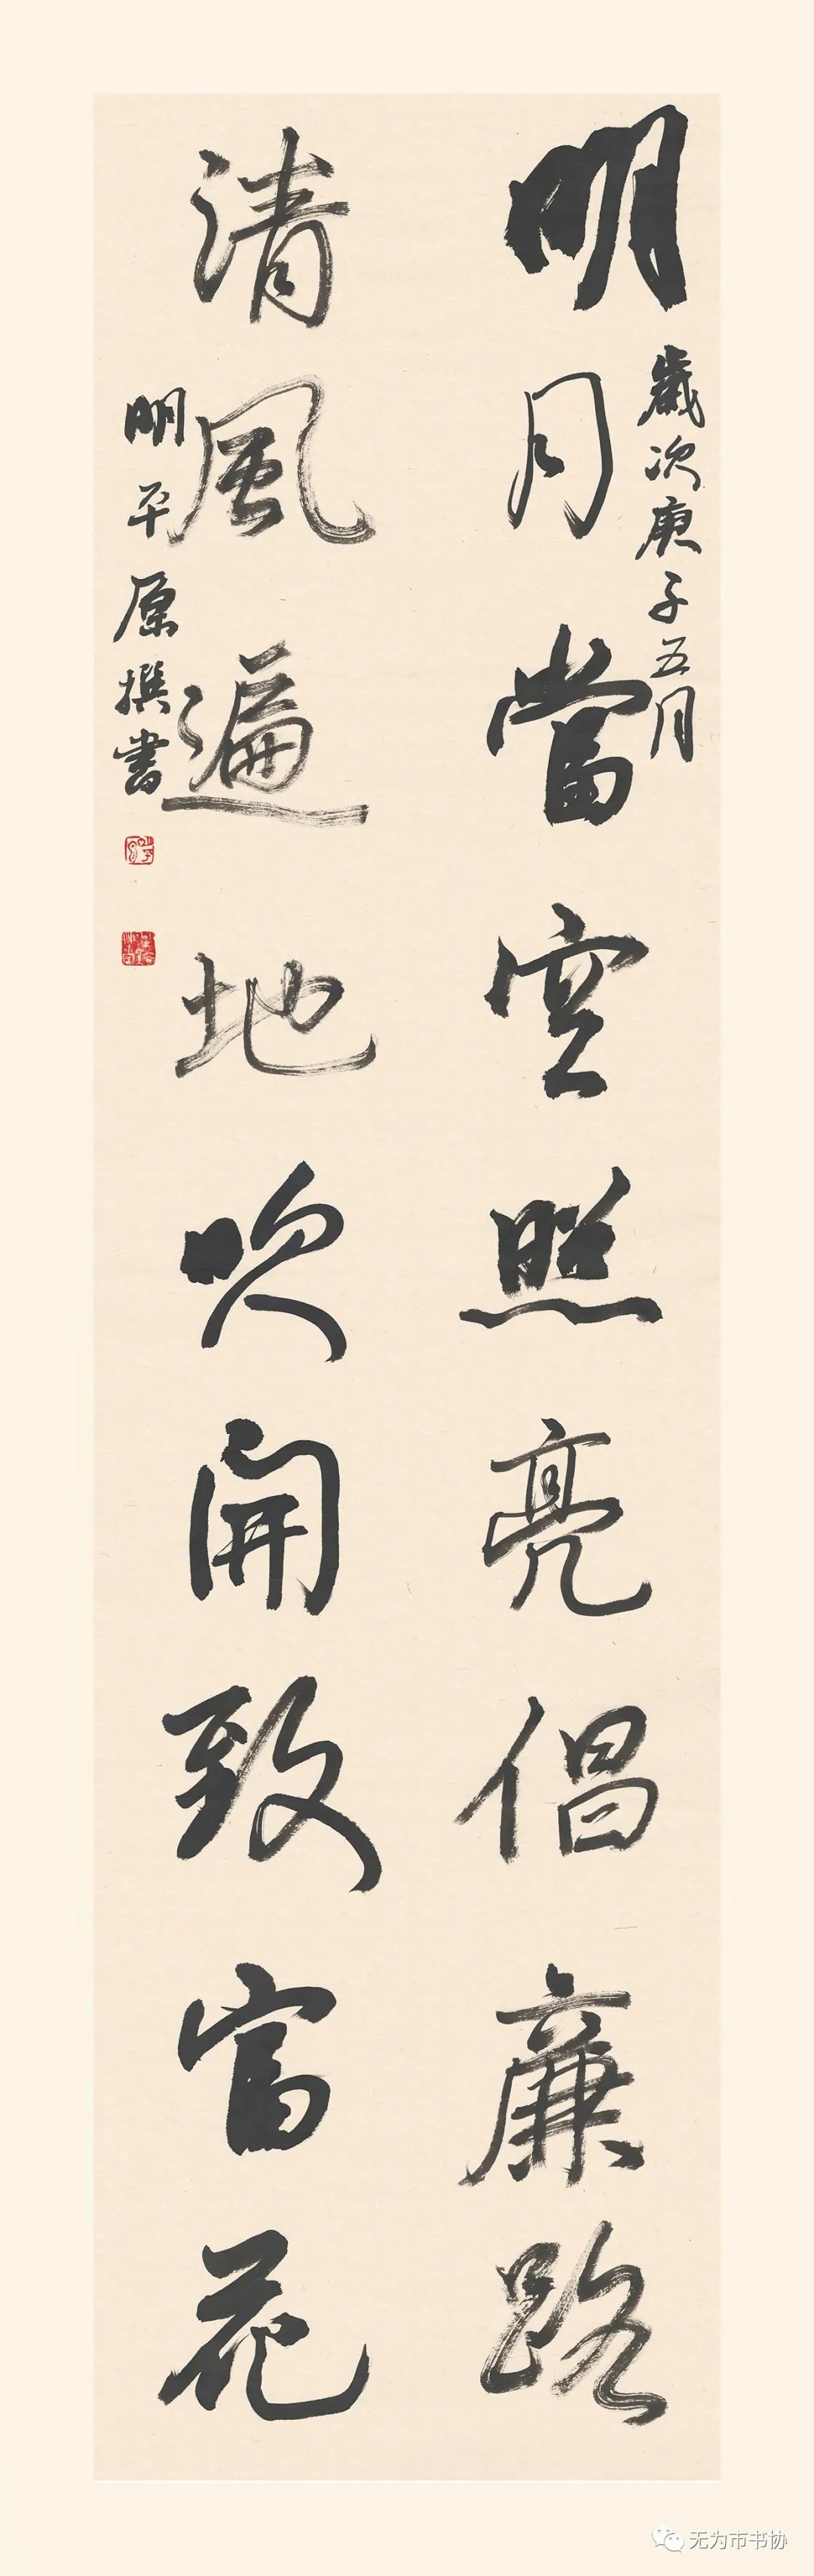 明月當空照亮倡廉路
歲次庚子五月
清風遍地吹開致富花
明平原撰書
无为市书协